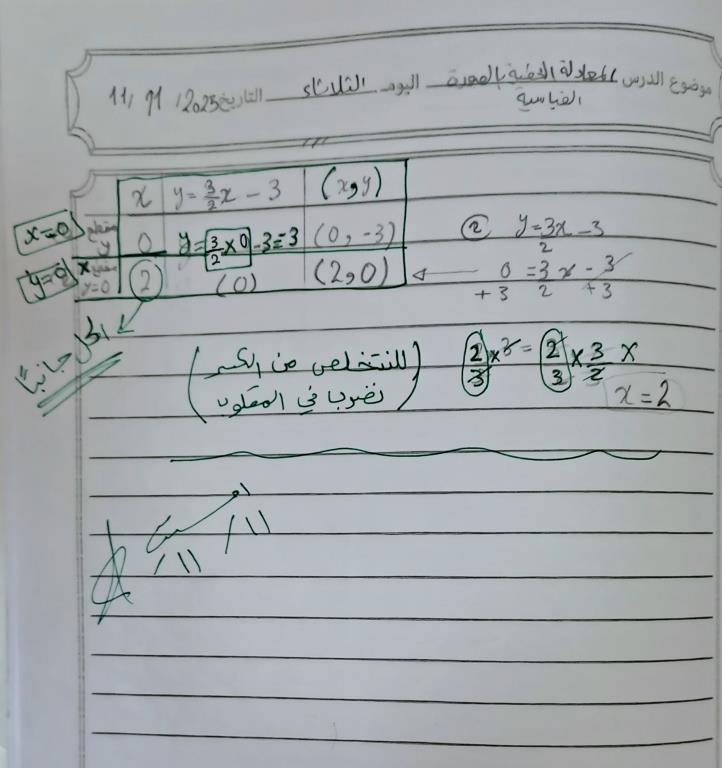 موضوع الدرس المعادلة الخطية بالصورة القياسية اليوم الثلاثاء التاريخ 11/11/2025
x | y = 3/2 x - 3 | (x,y)
x=0 مقطع y | 0 | y = 3/2 × 0 - 3 = 3 | (0, -3)
y=0 مقطع x y=0 | 2 | (0) | (2,0)
الحل جانباً
② y = 3/2 x - 3
0 = 3/2 x - 3
+3 +3
2/3 × 3 = 2/3 × 3/2 x
x = 2
(للنتخلص من الكسر
نضربها في المقلوب)
11/
11/